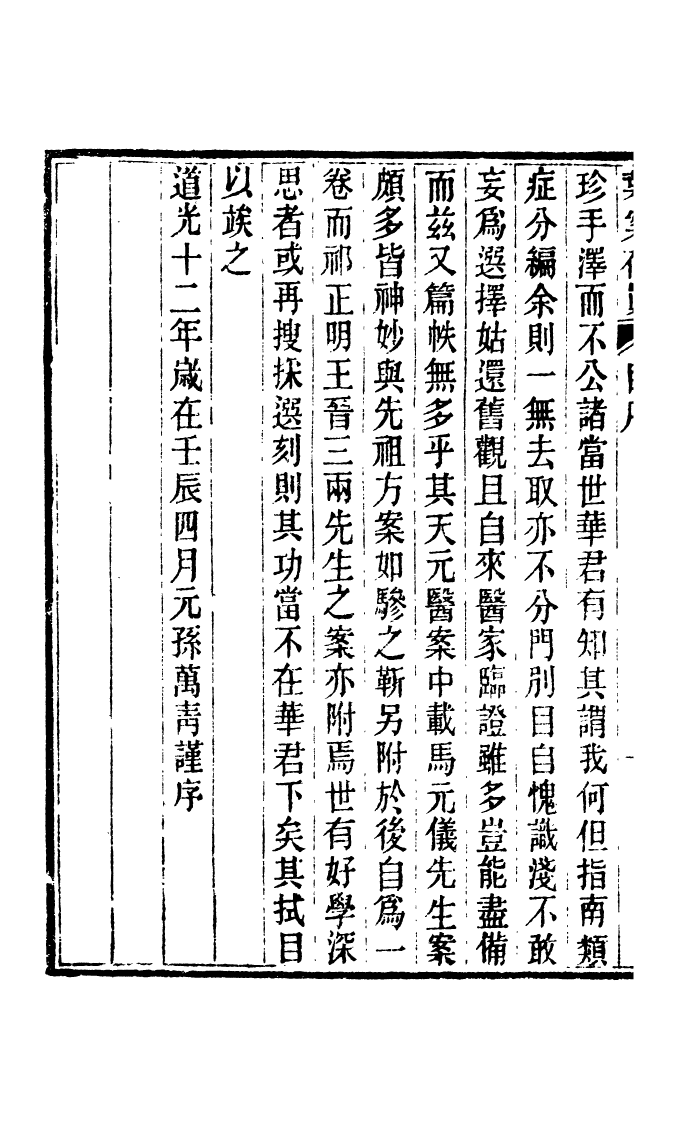 珍手澤而不公諸當世華君有知其謂我何但指南類
症分編余則一無去取亦不分門別目自愧識淺不敢
妄爲選擇姑還舊觀且自來醫家臨證雖多豈能盡備
而兹又篇帙無多乎其天元醫案中載馬元儀先生案
頗多皆神妙與先祖方案如驂之靳另附於後自爲一
卷而祁正明王晉三兩先生之案亦附焉世有好學深
思者或再搜採選刻則其功當不在華君下矣其拭目
以竢之
道光十二年歲在壬辰四月元孫萬靑謹序